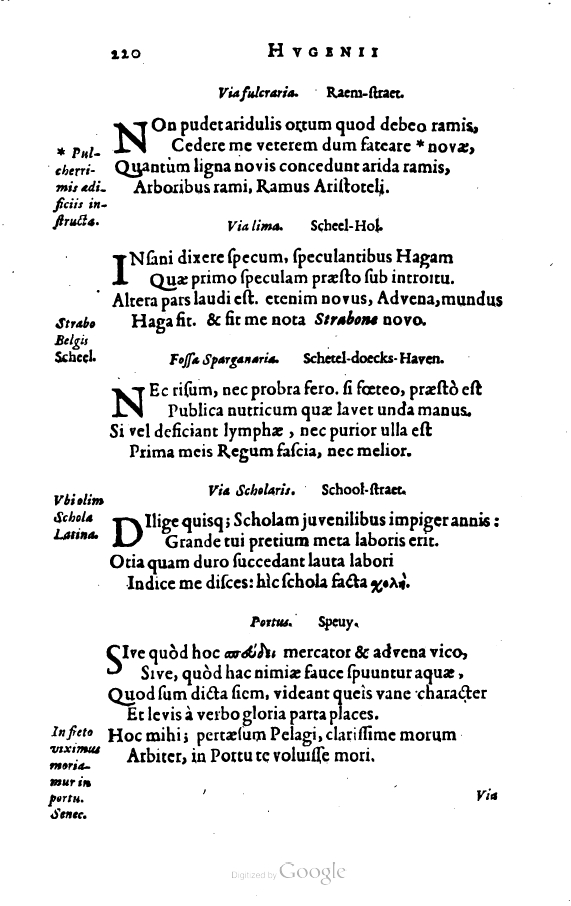 220 HVGENII
Via fulcraria. Raem-ſtraet.
NOn pudet aridulis ortum quod debeo ramis,
Cedere me veterem dum fateare * novæ,
Quantùm ligna novis concedunt arida ramis,
Arboribus rami, Ramus Ariſtoteli.
* Pul-
cherri-
mis ædi-
ficiis in-
ſtructa.
Via lima. Scheel-Hol.
INſani dixere ſpecum, ſpeculantibus Hagam
Quæ primo ſpeculam præſto ſub introitu.
Altera pars laudi eſt. etenim novus, Advena, mundus
Haga fit. & fit me nota Strabone novo.
Strabo
Belgis
Scheel.
Foſſa Sparganaria. Schetel-doecks-Haven.
NEc riſum, nec probra fero. ſi fœteo, præſtò eſt
Publica nutricum quæ lavet unda manus.
Si vel deficiant lymphæ, nec purior ulla eſt
Prima meis Regum faſcia, nec melior.
Via Scholaris. School-ſtraet.
DIlige quisq; Scholam juvenilibus impiger annis:
Grande tui pretium meta laboris erit.
Otia quam duro ſuccedant lauta labori
Indice me diſces: hîc ſchola facta χολή.
Vbi olim
Schola
Latina.
Portus. Speuy.
SIve quòd hoc mercator & advena vico,
Sive, quòd hac nimiæ fauce ſpuuntur aquæ,
Quod ſum dicta ſiem, videant queis vane character
Et levis à verbo gloria parta places.
Hoc mihi; pertæſum Pelagi, clariſſime morum
Arbiter, in Portu te voluiſſe mori.
In freto
viximus
moria-
mur in
portu.
Senec.
Via
Digitized by Google